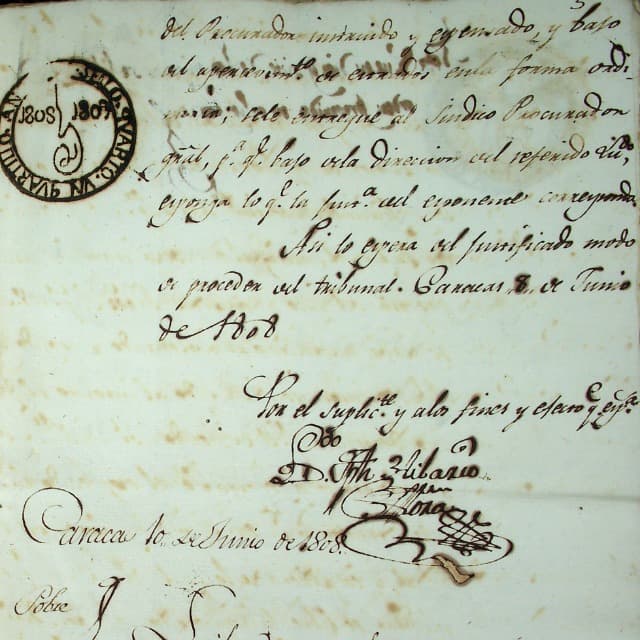 del Procurador instruido y expensado, y bajo
del apercevim.to de errados en la forma ordi
naria, se le entregue al Sindico Procurador
gral, p.a q.e bajo de la direccion del referido
exponga lo q.e la jus.a del exponente corresponda
Asi lo espera del justificado modo
de proceder del tribunal. Caracas 8 de Junio
de 1808
Por el suplic.te y a los fines y efec.o q.e exp.a
D.
Caracas 10 de Junio de 1808
Sobre
SELLO QUARTO, UN QUARTILLO
1808 1809